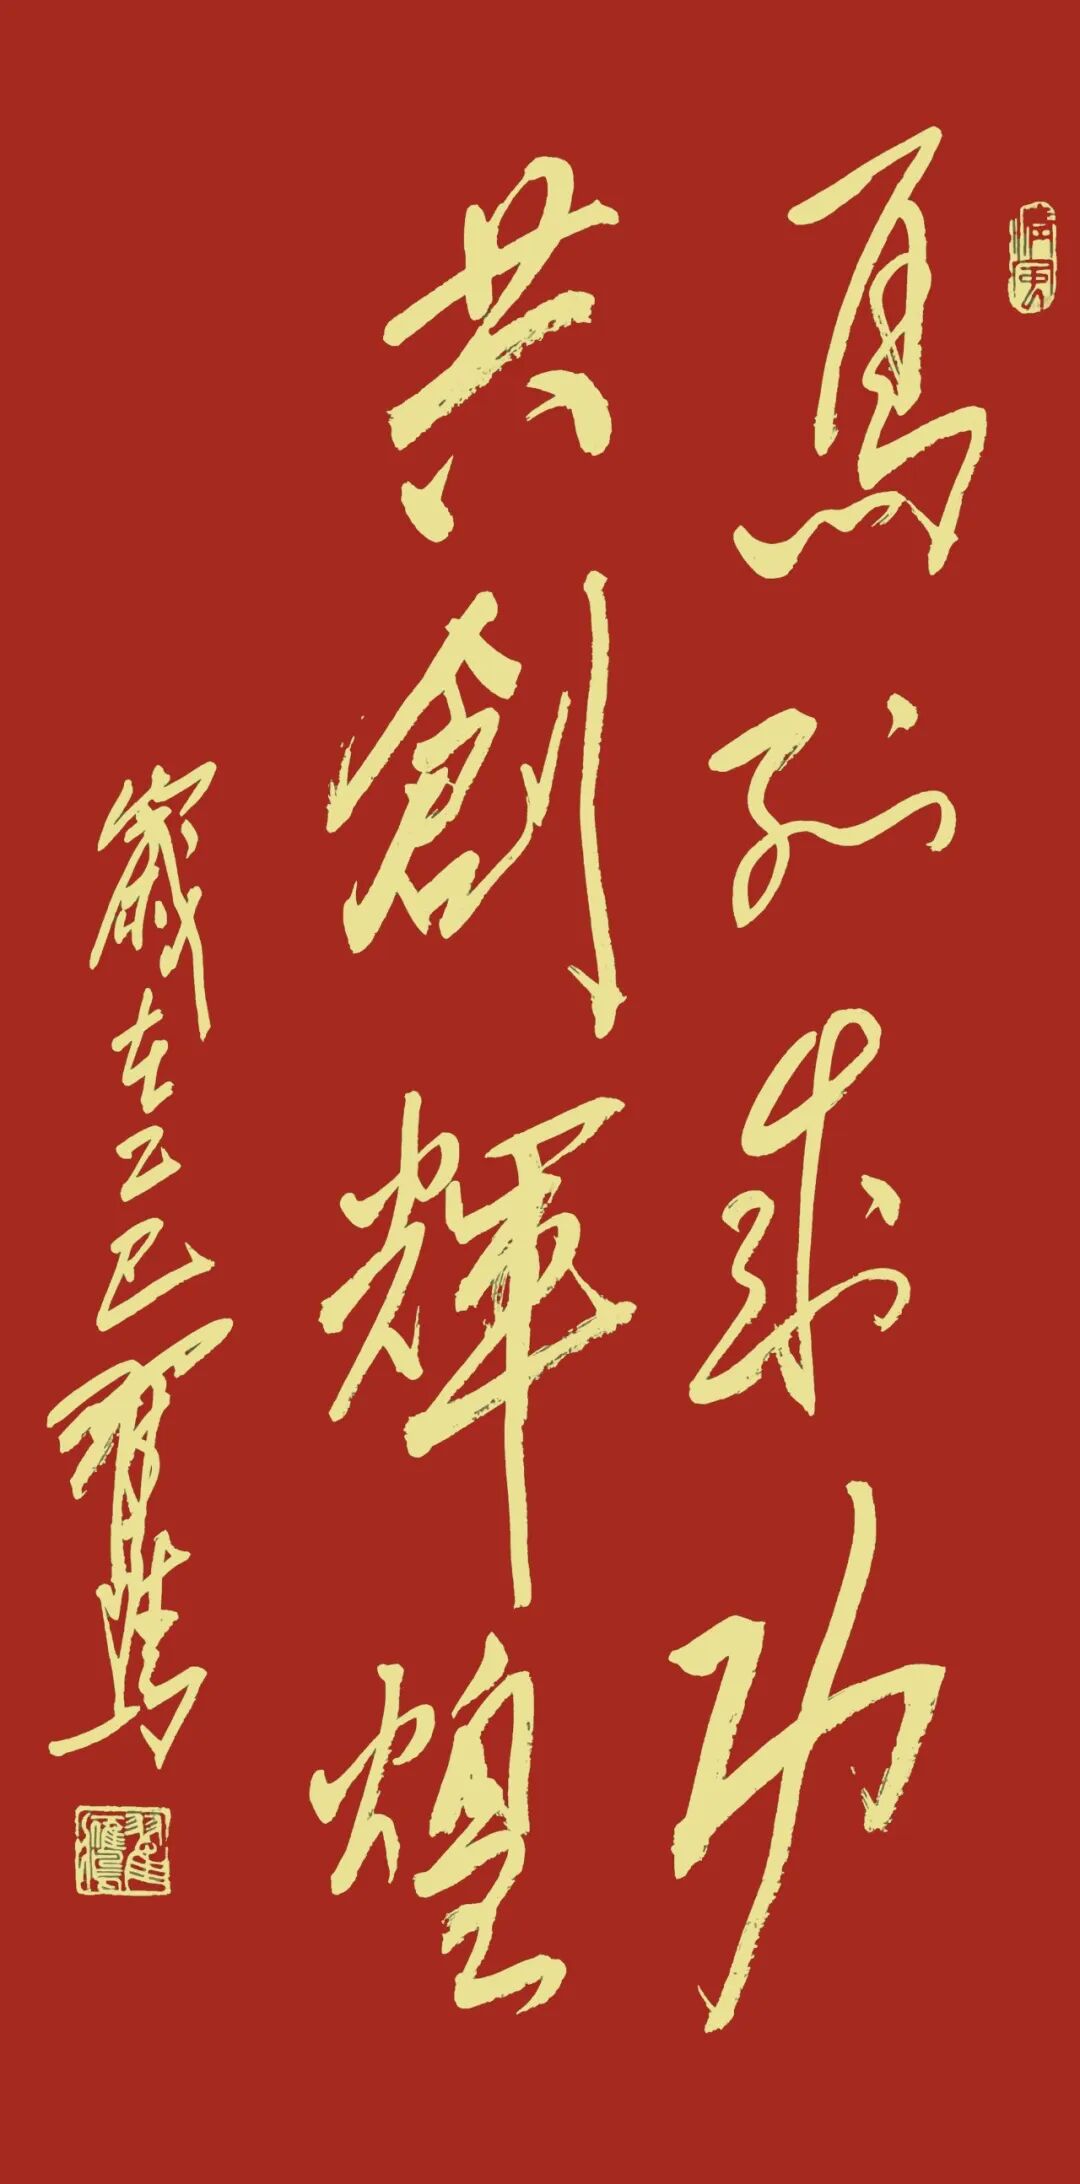 馬到成功
共創輝煌
歲在乙巳